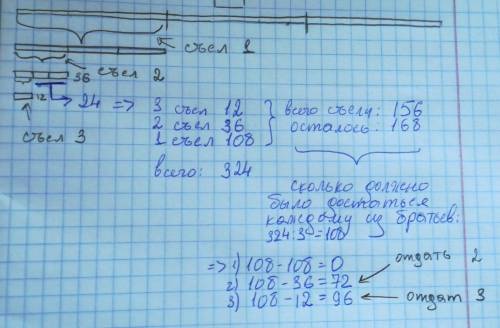 съел 1
36 съел 2
12 24 => 3 съел 12
съел 3
2 съел 36
1 съел 108
всего съели: 156
осталось: 168
всего: 324
сколько должно
было достаться
каждому из братьев:
324:3=108
=> 1) 108-108=0
2) 108-36=72
3) 108-12=96
отдать 2
отдат 3